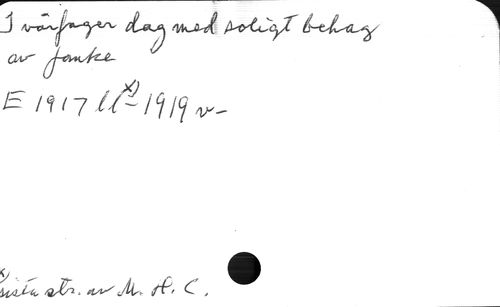 I vårfager dag med soligt behag
av Janke
E 1917 ll x) – 1919 v –
x)
sista str. av M. H. C.